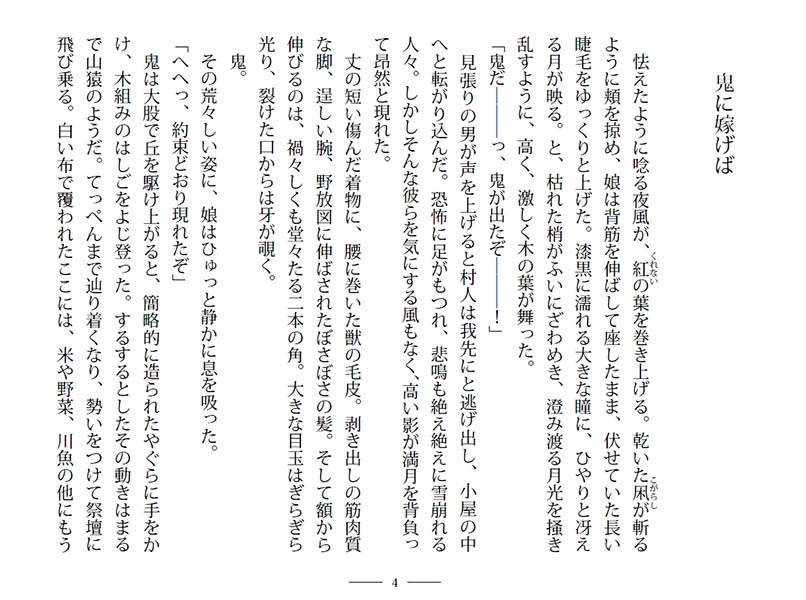 鬼に嫁げば
怯えたように唸る夜風が、紅の葉を巻き上げる。乾いた凩が斬る
くれない
こがらし
ように頬を掠め、娘は背筋を伸ばして座したまま、伏せていた長い
睫毛をゆっくりと上げた。漆黒に濡れる大きな瞳に、ひやりと冴え
る月が映る。と、枯れた梢がふいにざわめき、澄み渡る月光を掻き
乱すように、高く、激しく木の葉が舞った。
「鬼だ―――っ、鬼が出たぞ―――！」
見張りの男が声を上げると村人は我先にと逃げ出し、小屋の中
へと転がり込んだ。恐怖に足がもつれ、悲鳴も絶え絶えに雪崩れる
人々。しかしそんな彼らを気にする風もなく、高い影が満月を背負っ
て昂然と現れた。
丈の短い傷んだ着物に、腰に巻いた獣の毛皮。剥き出しの筋肉質
な脚、逞しい腕、野放図に伸ばされたぼさぼさの髪。そして額から
伸びるのは、禍々しくも堂々たる二本の角。大きな目玉はぎらぎら
光り、裂けた口からは牙が覗く。
鬼。
その荒々しい姿に、娘はひゅっと静かに息を吸った。
「へへっ、約束どおり現れたぞ」
鬼は大股で丘を駆け上がると、簡略的に造られたやぐらに手をか
け、木組みのはしごをよじ登った。するするとしたその動きはまる
で山猿のようだ。てっぺんまで辿り着くなり、勢いをつけて祭壇に
飛び乗る。白い布で覆われたここには、米や野菜、川魚の他にもう
4